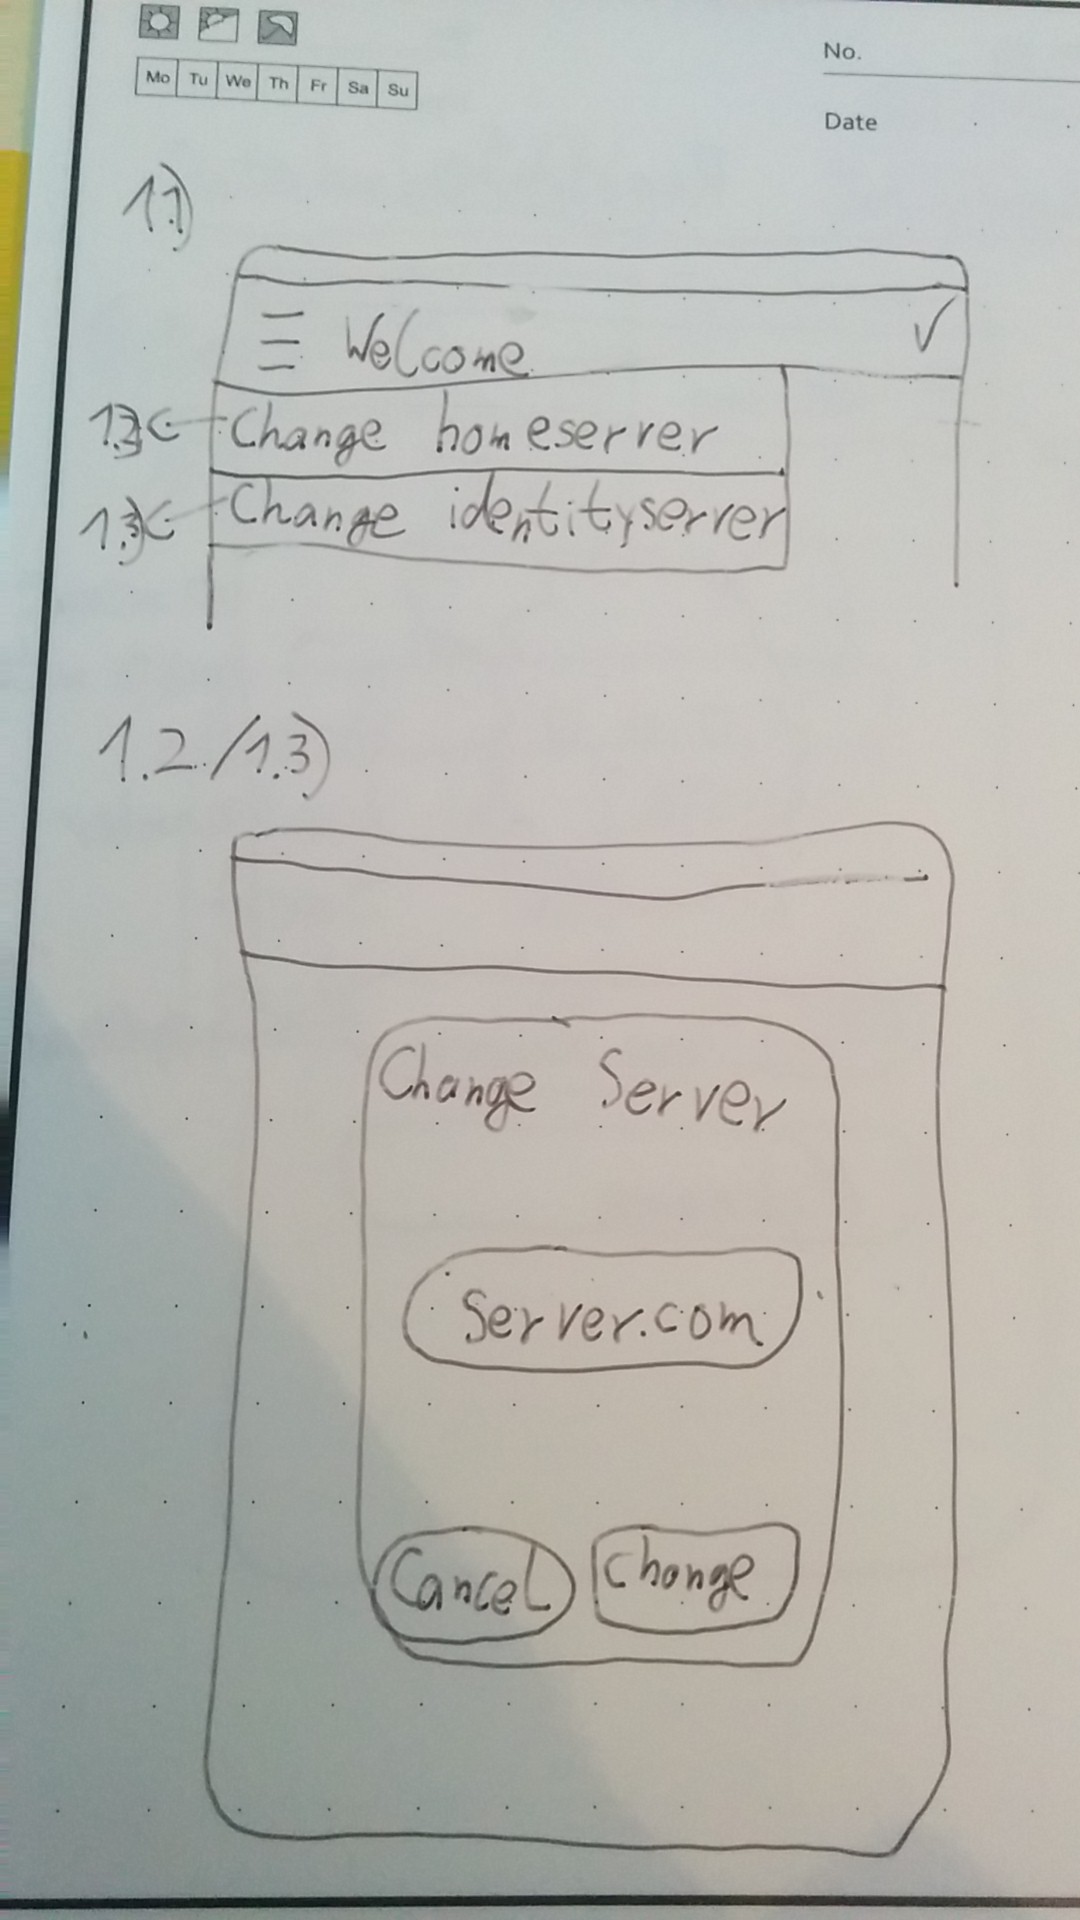 Mo Tu We Th Fr Sa Su
No.
Date
1.1)
Welcome
Change homeserver
1.3) Change identityserver
1.2./1.3)
Change Server
Server.com
Cancel Change